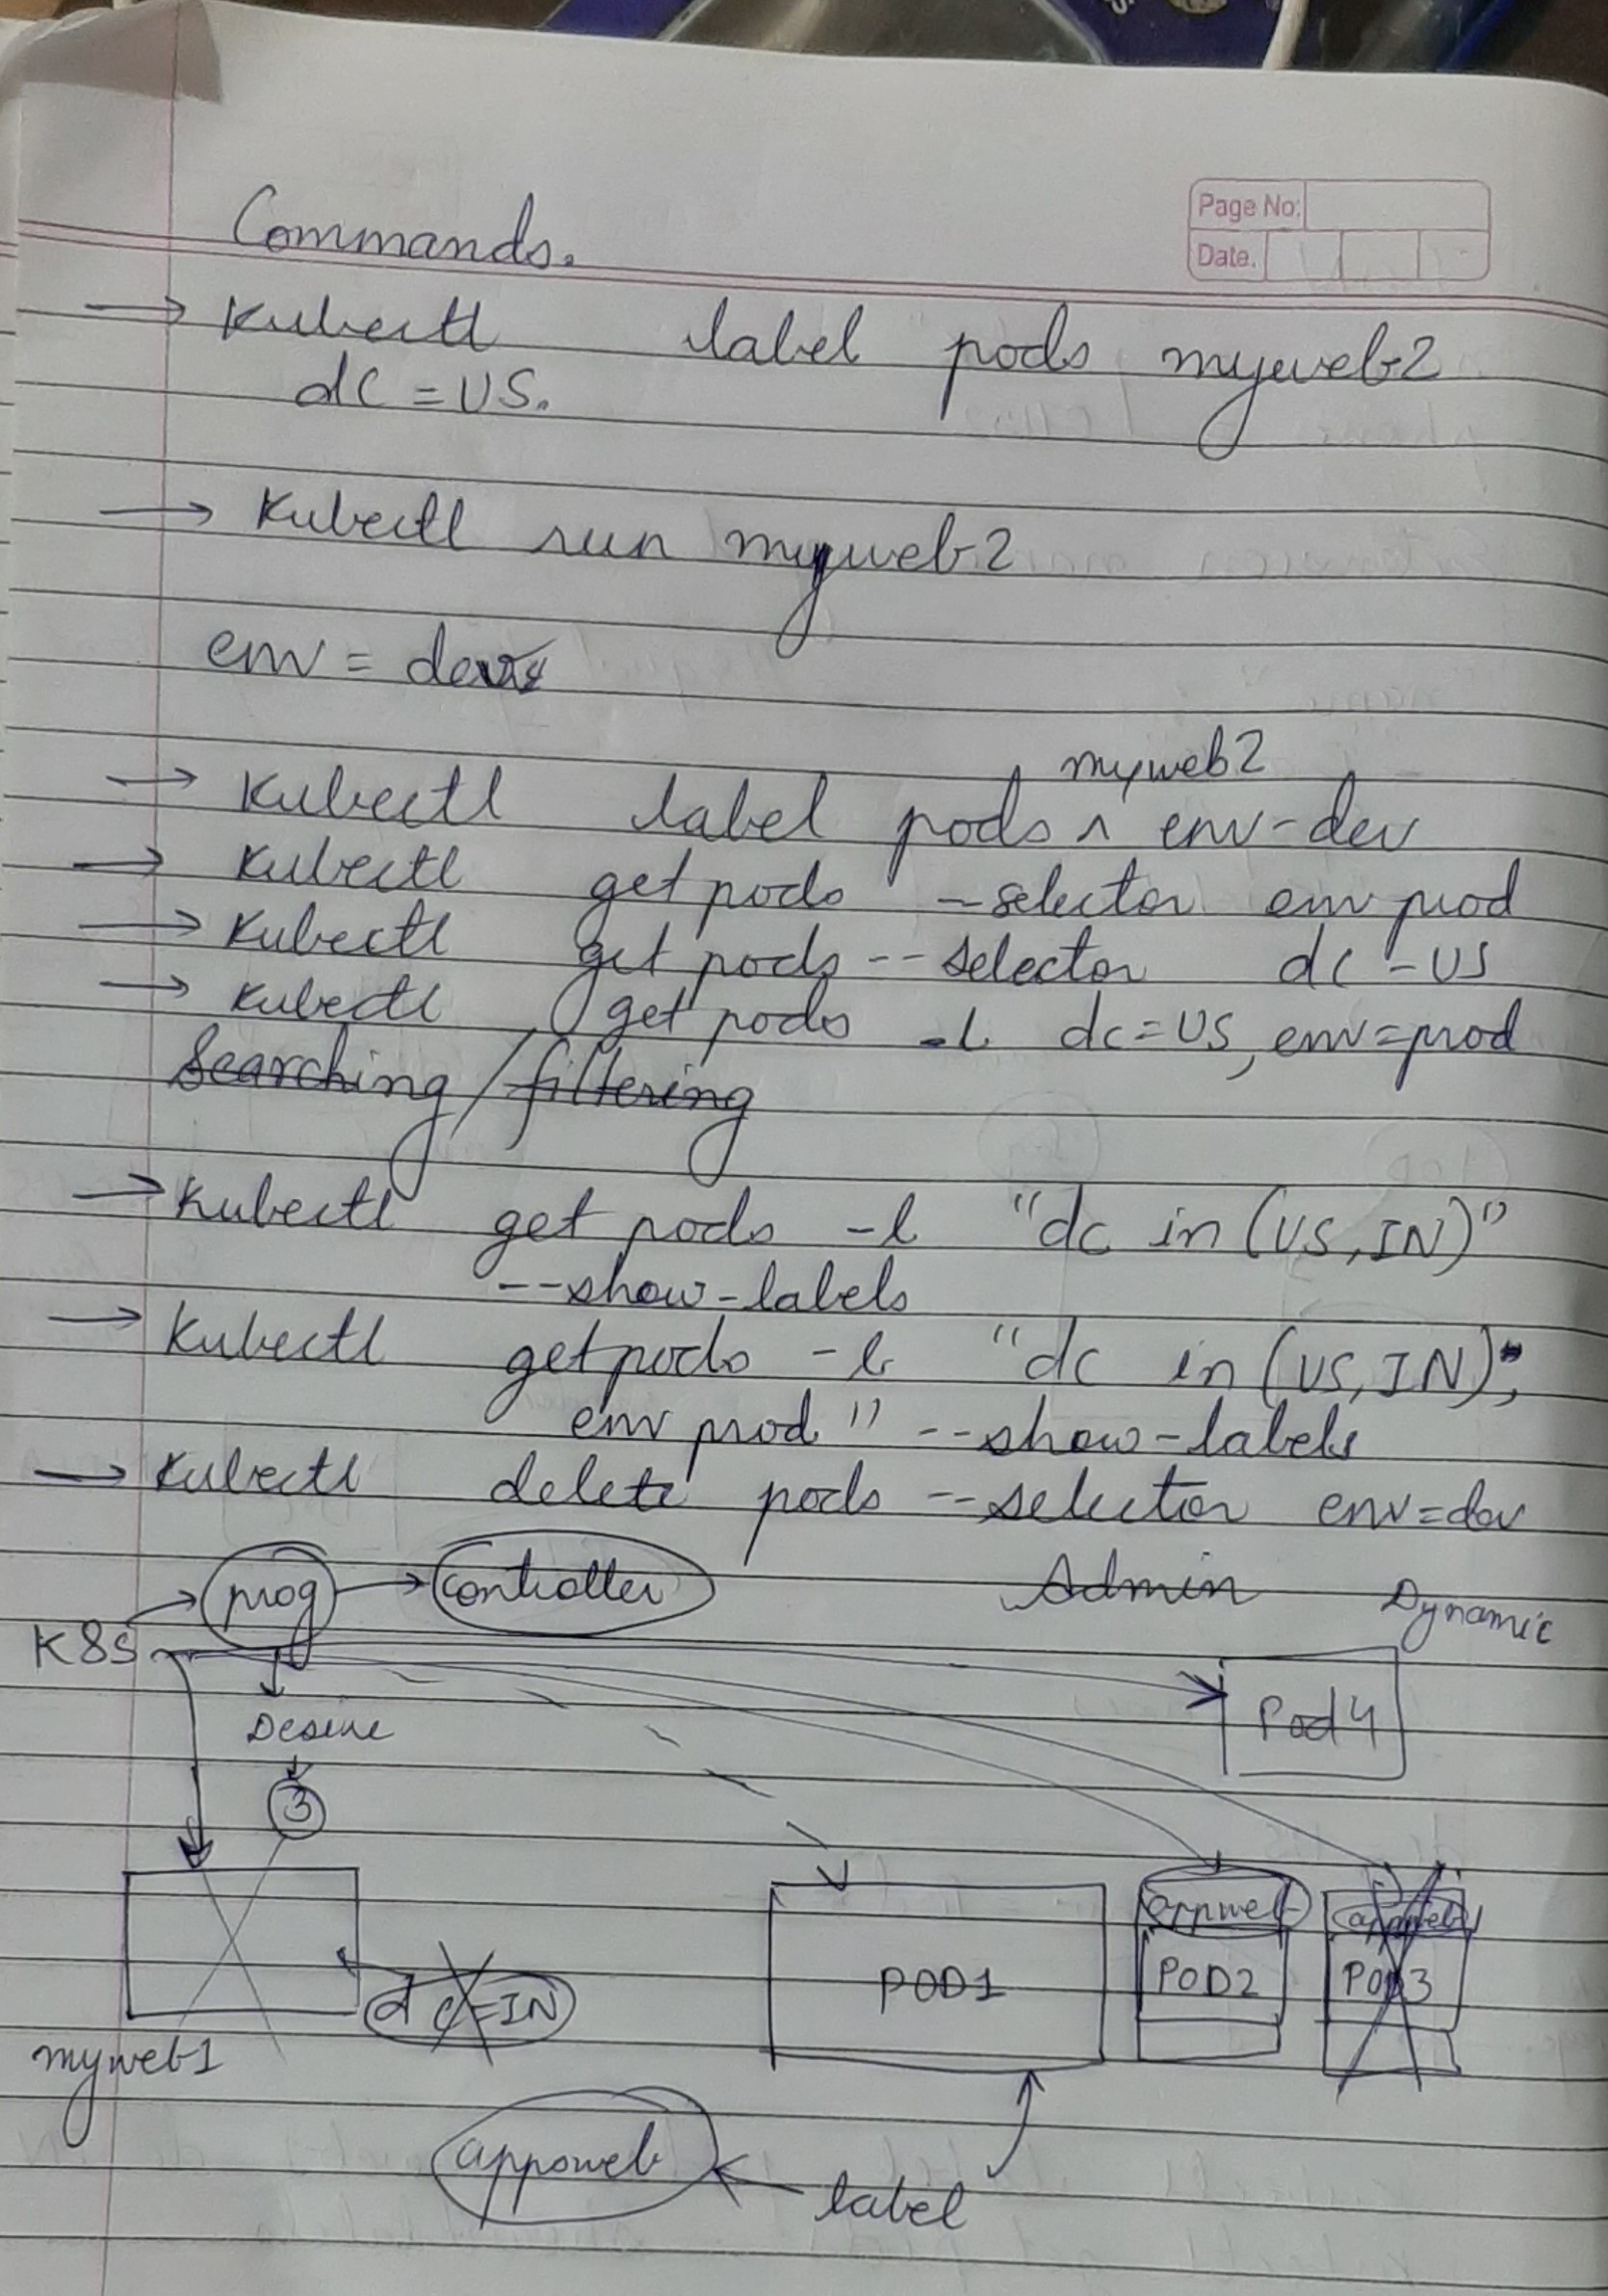 Page No:
Date.
Commands.
→ Kubectl label pods myweb2
dc = US.
→ Kubectl run myweb2
env = dev
myweb2
→ Kubectl label pods ^ env-dev
→ Kubectl get pods -selector env prod
→ Kubectl get pods -- selector dc - US
→ Kubectl get pods -l dc=US, env=prod
Searching / filtering
→ Kubectl get pods -l "dc in (US, IN)"
--show-labels
→ Kubectl get pods -l "dc in (US, IN),
env prod" --show-labels
→ Kubectl delete pods --selector env=dev
prog → controller
Admin
Dynamic
K8S
Pod 4
Desire
3
appweb
appweb
POD1
POD2
POD3
dc=IN
myweb1
appoweb
label